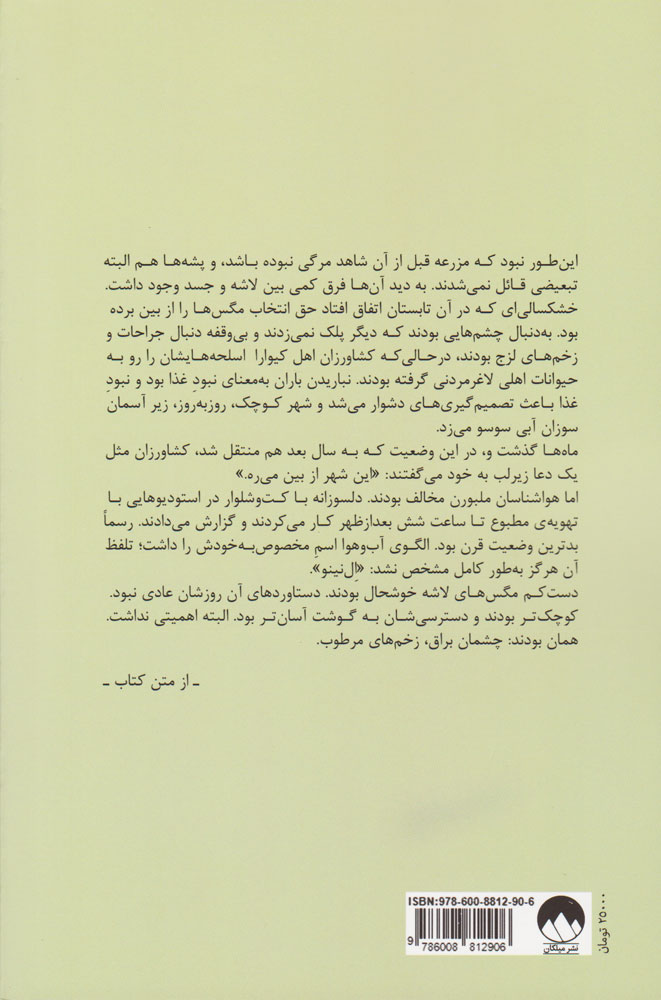 این‌طور نبود که مزرعه قبل از آن شاهد مرگی نبوده باشد، و پشه‌ها هم البته
تبعیضی قائل نمی‌شدند. به دید آن‌ها فرق کمی بین لاشه و جسد وجود داشت.
خشکسالی‌ای که در آن تابستان اتفاق افتاد حق انتخاب مگس‌ها را از بین برده
بود. به‌دنبال چشم‌هایی بودند که دیگر پلک نمی‌زدند و بی‌وقفه دنبال جراحات و
زخم‌های لزج بودند، درحالی‌که کشاورزان اهل کیوارا اسلحه‌هایشان را رو به
حیوانات اهلی لاغرمردنی گرفته بودند. نباریدن باران به‌معنای نبودِ غذا بود و نبودِ
غذا باعث تصمیم‌گیری‌های دشوار می‌شد و شهر کوچک، روزبه‌روز، زیر آسمان
سوزان آبی سوسو می‌زد.
ماه‌ها گذشت و، در این وضعیت که به سال بعد هم منتقل شد، کشاورزان مثل
یک دعا زیرلب به خود می‌گفتند: «این شهر از بین می‌ره.»
اما هواشناسان ملبورن مخالف بودند. دلسوزانه با کت‌وشلوار در استودیوهایی با
تهویه‌ی مطبوع تا ساعت شش بعدازظهر کار می‌کردند و گزارش می‌دادند. رسماً
بدترین وضعیت قرن بود. الگوی آب‌وهوا اسمِ مخصوص‌به‌خودش را داشت؛ تلفظ
آن هرگز به‌طور کامل مشخص نشد: «اِل‌نینو».
دست‌کم مگس‌های لاشه خوشحال بودند. دستاوردهای آن روزشان عادی نبود.
کوچک‌تر بودند و دسترسی‌شان به گوشت آسان‌تر بود. البته اهمیتی نداشت.
همان بودند: چشمان براق، زخم‌های مرطوب.
ـ از متن کتاب ـ
ISBN:978-600-8812-90-6
9 786008 812906
نشر میلکان
۲۵۰۰۰ تومان